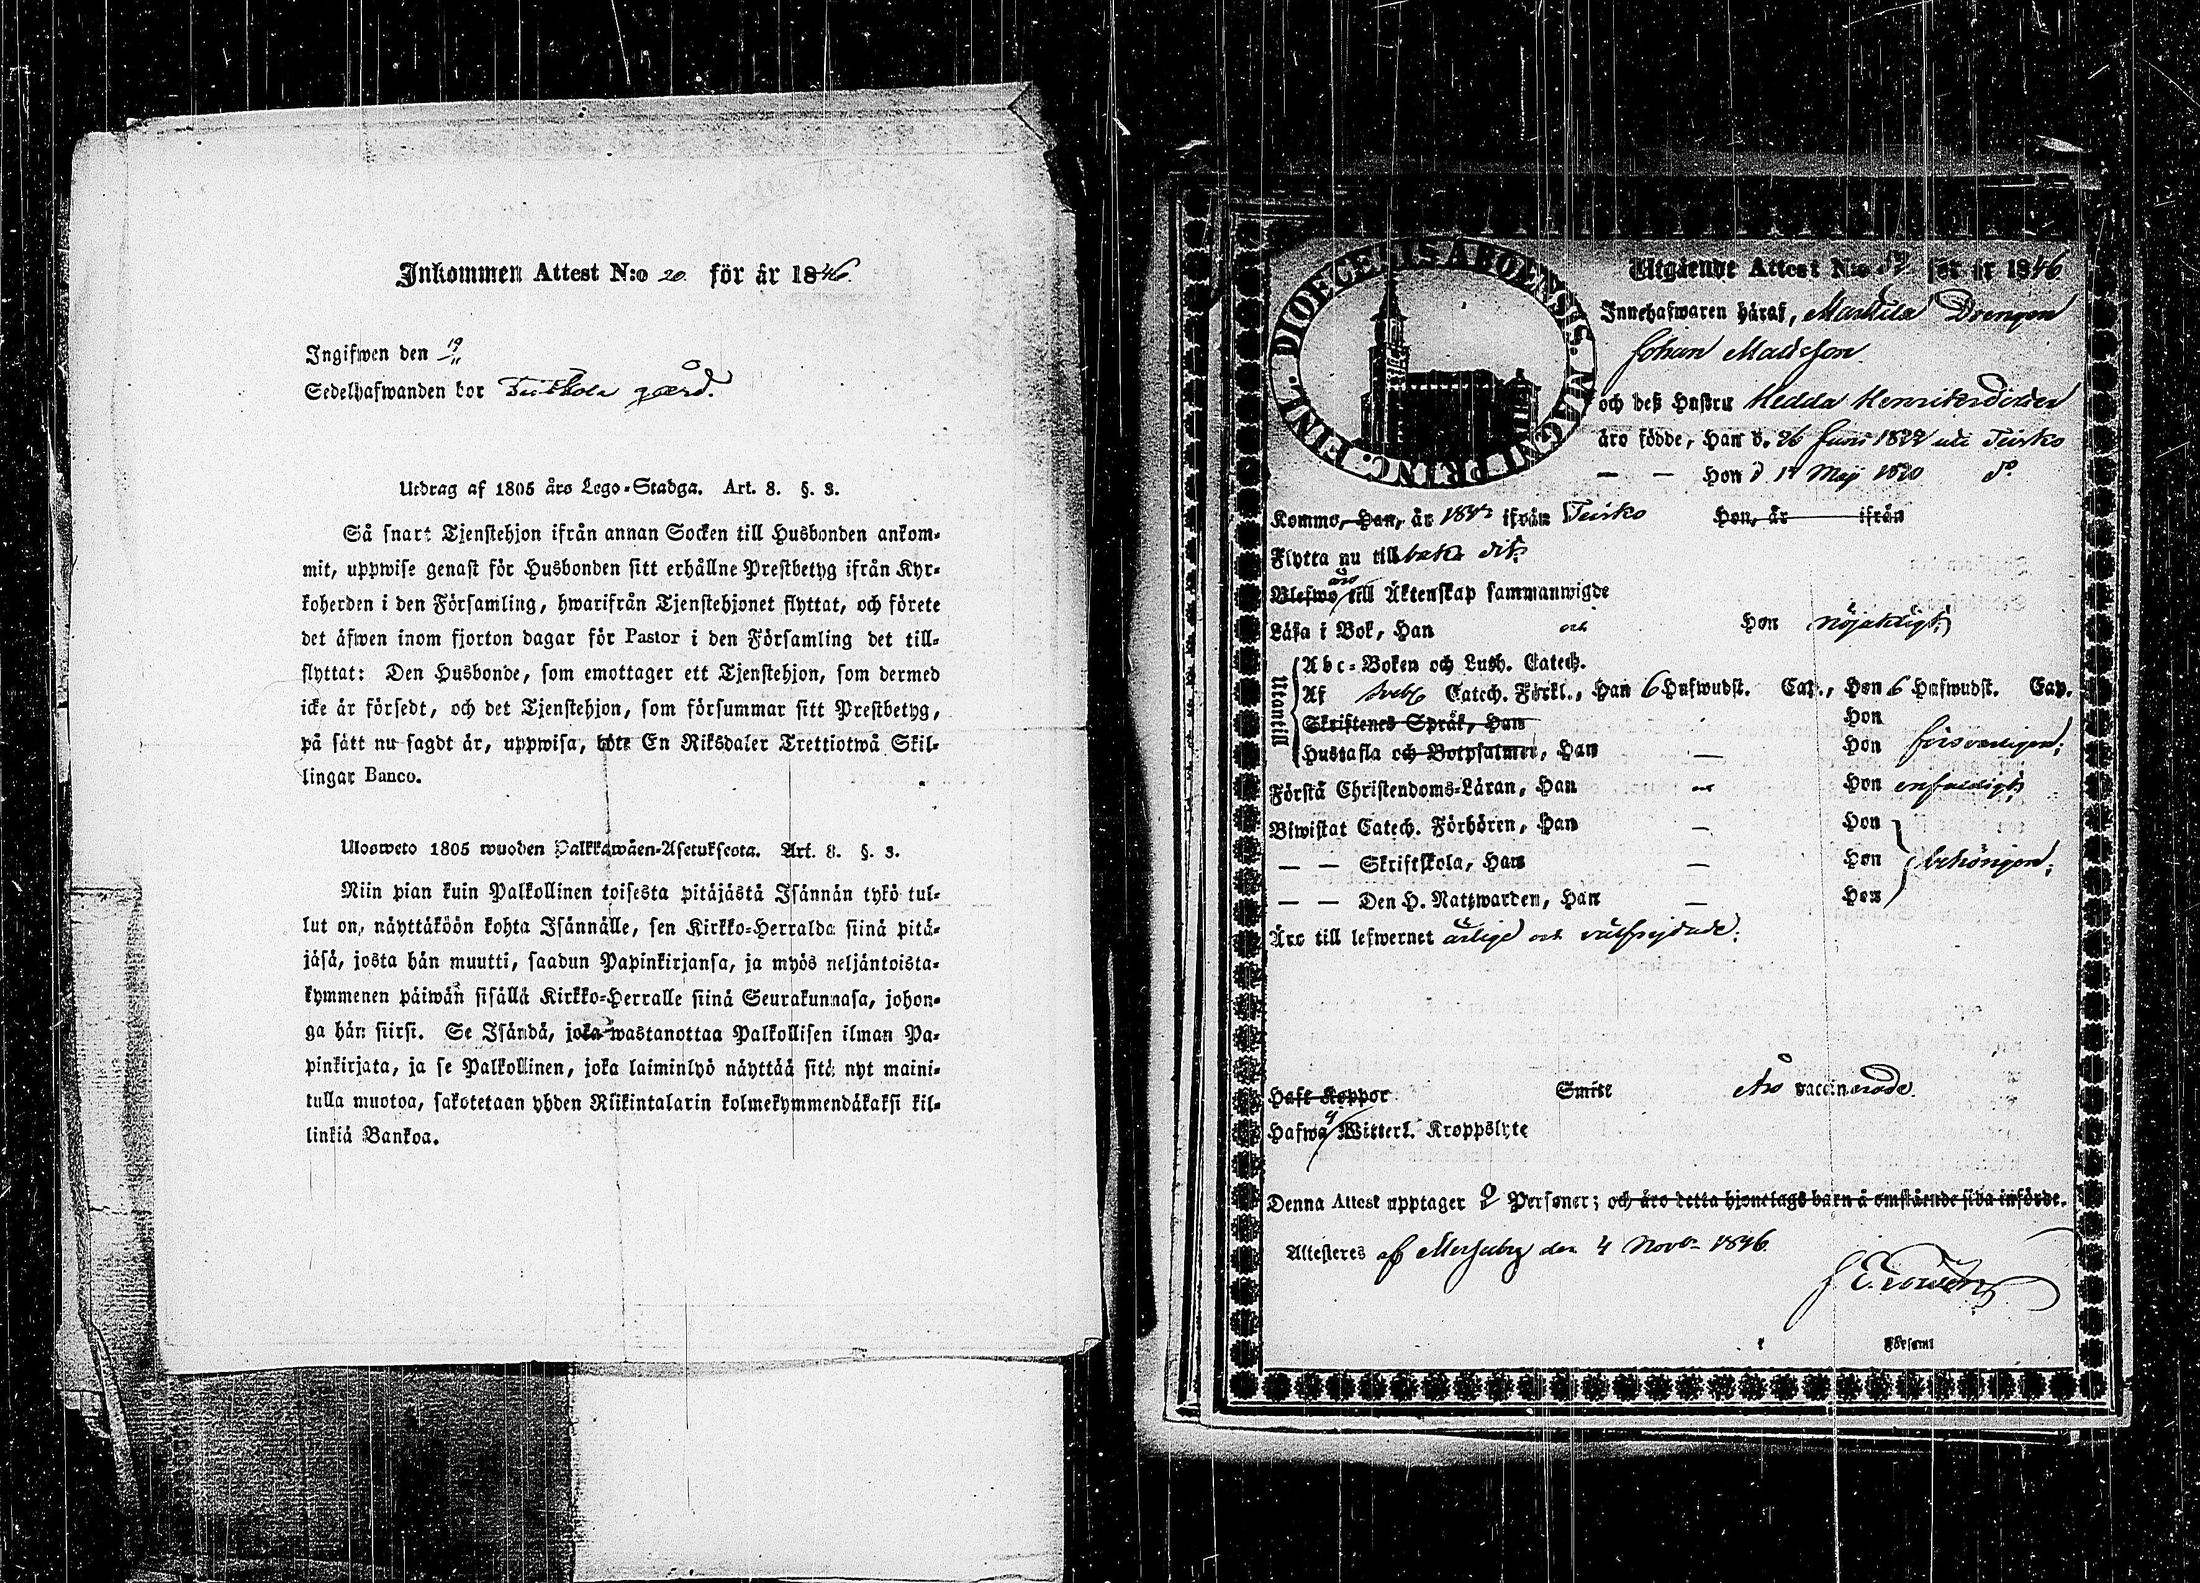 Inkommen Attest N:o 20. för år 1846.
Ingifwen den 19/11
Sedelhafwanden bor gård.
Utdrag af 1805 års Lego-Stadga. Art. 8. §. 3.
Så snart Tjenstehjon ifrån annan Socken till Husbonden ankom-
mit, uppwise genast för Husbonden sitt erhållne Prestbetyg ifrån Kyr-
koherden i den Församling, hwarifrån Tjenstehjonet flyttat, och förete
det äfwen inom fjorton dagar för Pastor i den Församling det till-
flyttat: Den Husbonde, som emottager ett Tjenstehjon, som dermed
icke är försedt, och det Tjenstehjon, som försummar sitt Prestbetyg,
på sätt nu sagdt är, uppwisa, böte En Riksdaler Trettiotwå Skil-
lingar Banco.
Ulosweto 1805 wuoden Palkkawäen-Asetuksesta. Art. 8. §. 3.
Niin pian kuin Palkollinen toisesta pitäjästä Isännän tykö tul-
lut on, näyttäköön kohta Isännälle, sen Kirkko-Herralda siinä pitä-
jäsä, josta hän muutti, saadun Papinkirjansa, ja myös neljäntoista-
kymmenen päiwän sisällä Kirkko-Herralle siinä Seurakunnasa, johon-
ga hän siirsi. Se Isändä, joka wastanottaa Palkollisen ilman Pa-
pinkirjata, ja se Palkollinen, joka laiminlyö näyttää sitä nyt maini-
tulla muotoa, sakotetaan yhden Riikintalarin kolmekymmendäkaksi kil-
linkiä Bankoa.
DIOECESIS ABOENSIS. MAGNI PRINC. FINL.
Utgående Attest N:o för år 1846
Innehafwaren häraf, Drengen
Johan Mattsson
och deß Hustru Hedda Henriksdotter
äro födde, Han d. 26 Juni 1822 uti Teisko
— — Hon d 17 Maji 1820 do
Kommo, Han, år 1842 ifrån Teisko Hon, år ifrån
Flytta nu tillbaka dit;
Blefwo äro till Äktenskap sammanwigde
Läsa i Bok, Han och Hon nöjaktigt;
Utantill
Abc-Boken och Luth. Catech.
Af Svebg Catech. Förkl., Han 6 Hufwudst. Cap., Hon 6 Hufwudst. Cap.
Skriftenes Språk, Han Hon
Hustafla och Botpsalmer, Han — Hon försvarligen;
Förstå Christendoms-Läran, Han och Hon enfaldigt;
Biwistat Catech. Förhören, Han — Hon
— — Skriftskola, Han — Hon behörigen;
— — Den H. Nattwarden, Han — Hon
Äro till lefwernet ärlige och välfrejdade;
Haft Koppor Smitt Äro vaccinerade.
Hafwa ej Witterl. Kroppslyte
Denna Attest upptager 2 Personer; och äro detta hjonelags barn å omstående sida införde.
Attesteres af Messuby den 4 Novbr 1846.
i Församl